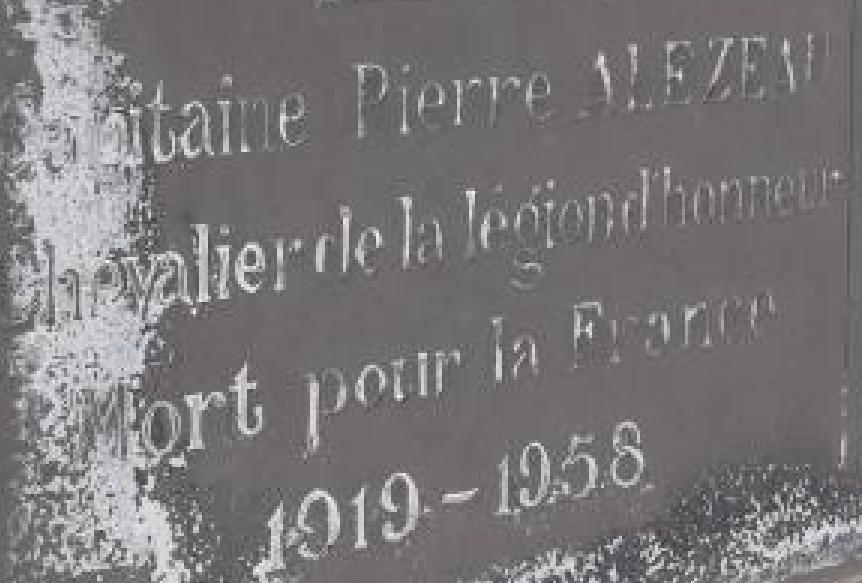 Capitaine Pierre ALEZEAU
Chevalier de la légion d'honneur
Mort pour la France
1919 - 1958